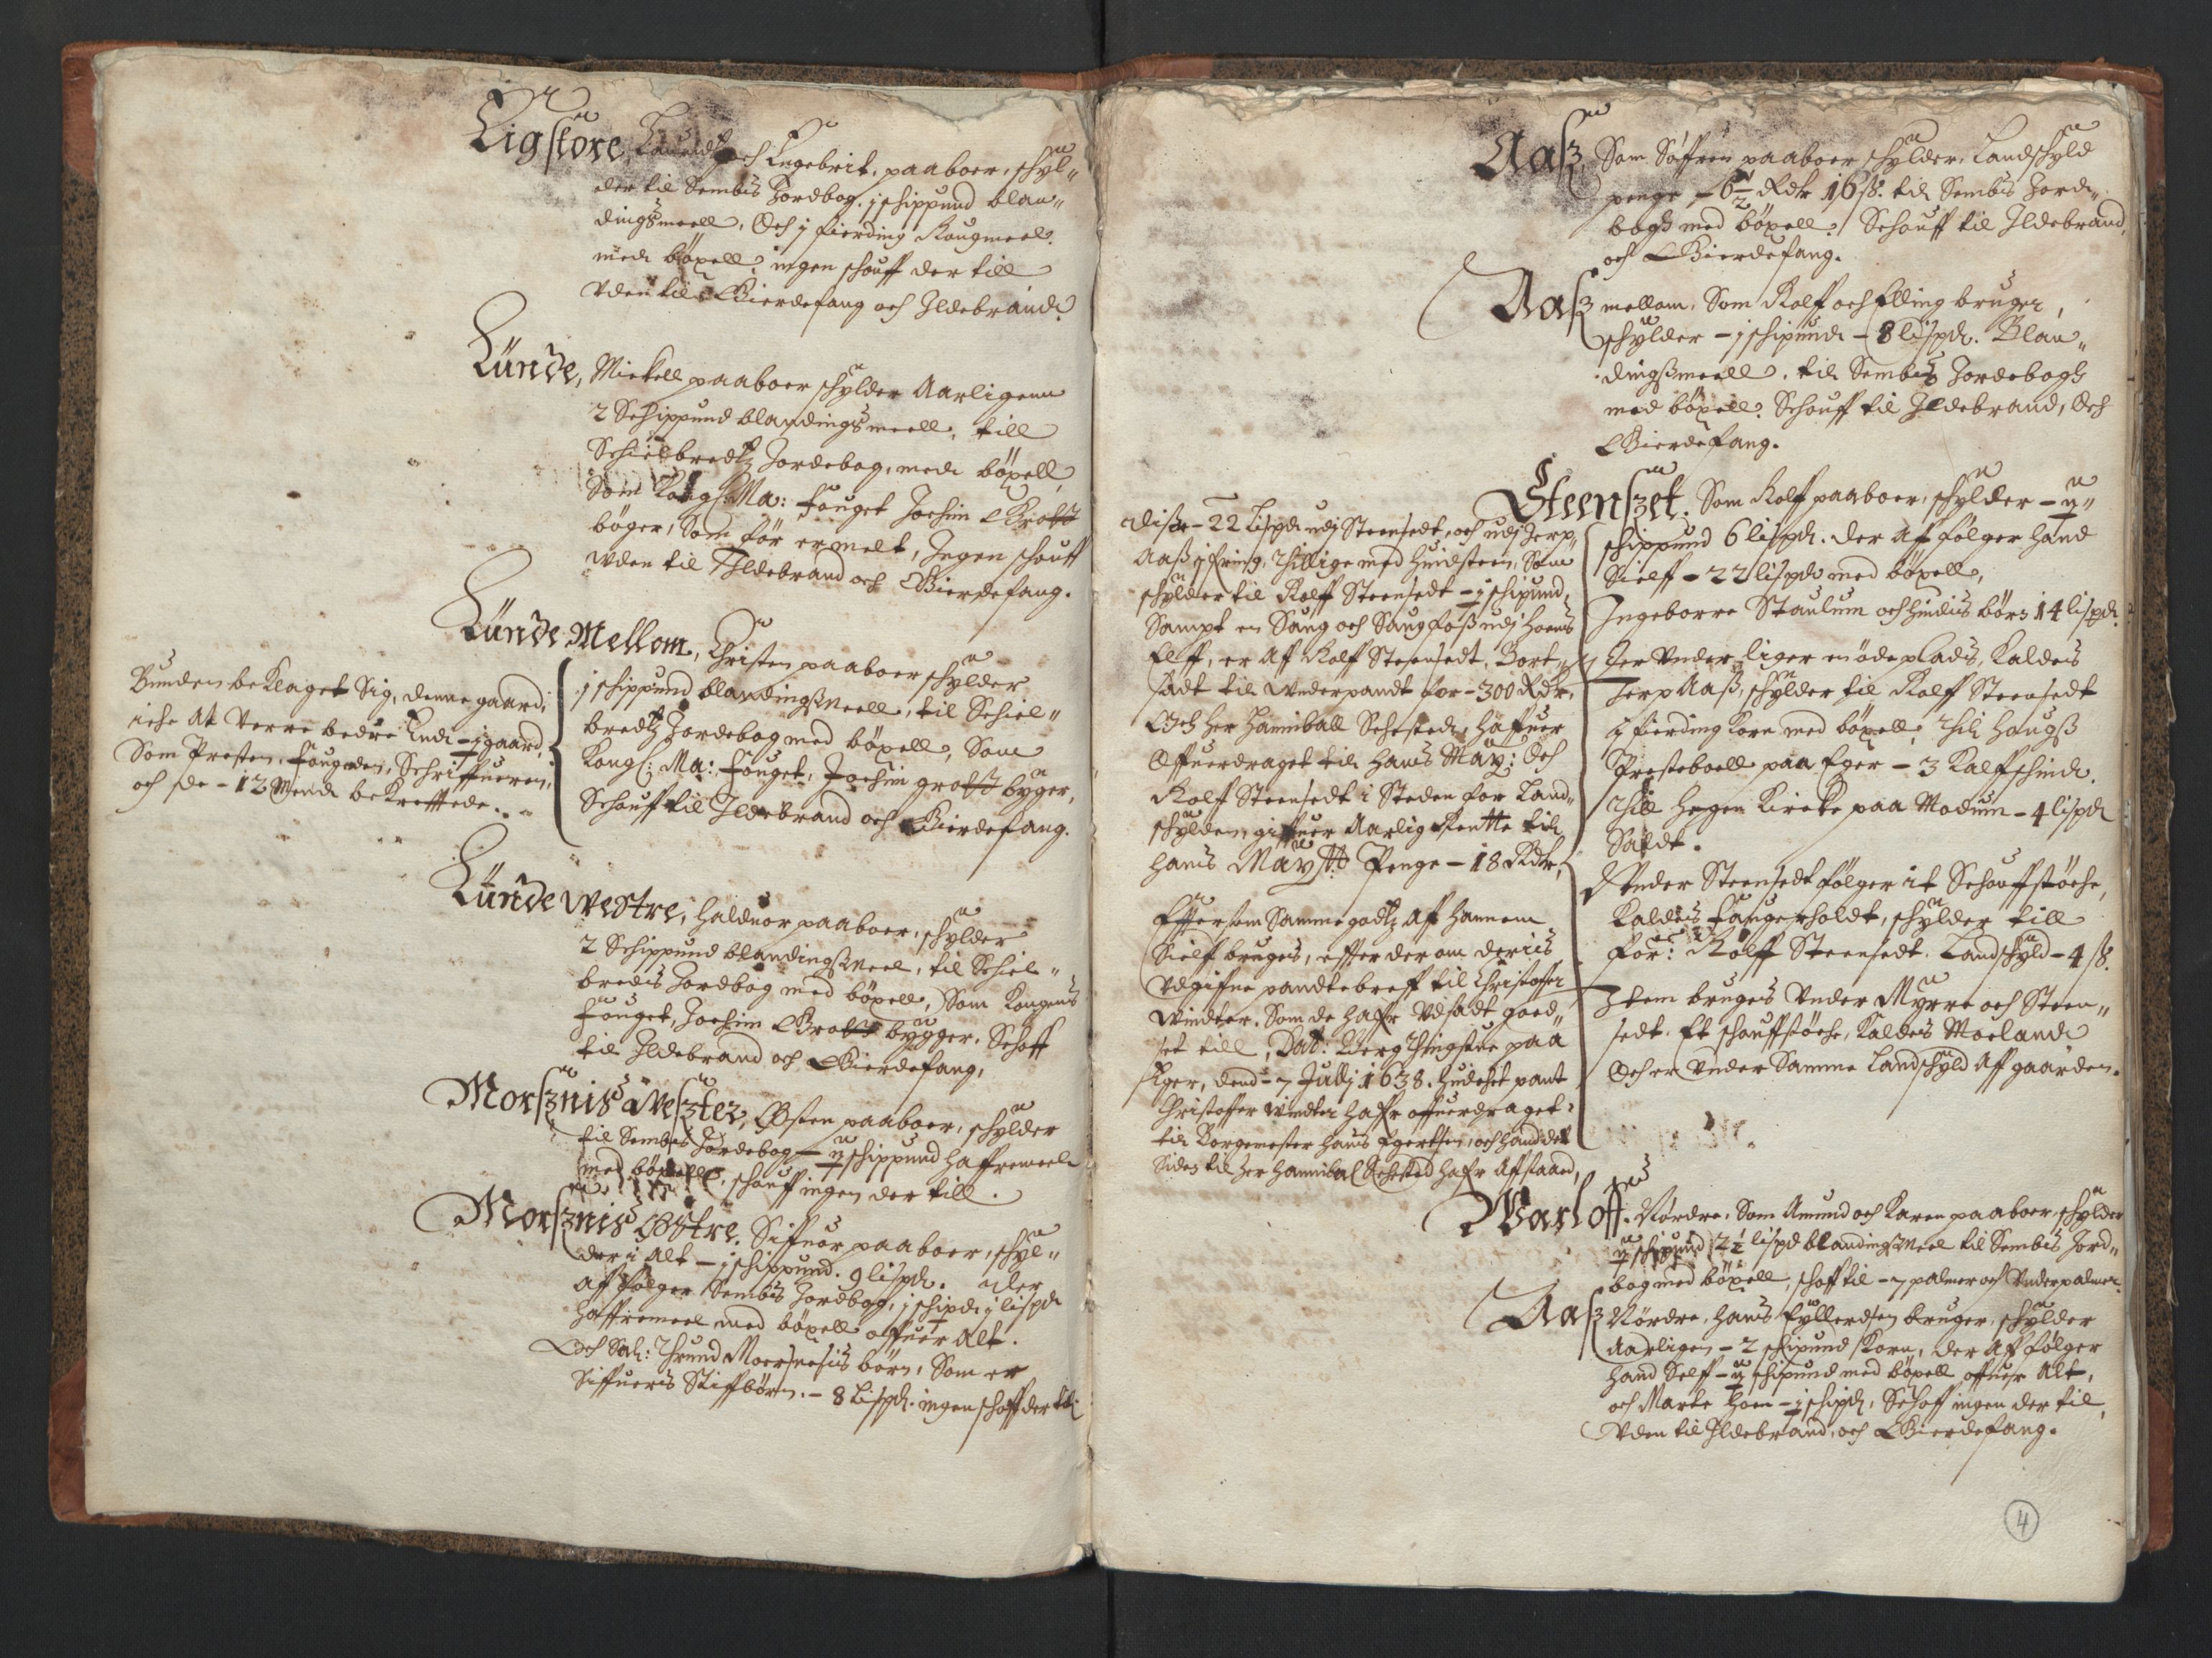 Ligstøre, Lauridtz och Engebrit, paaboer, schyl„
der til Sembs Jordbog. j schippund blan„
dingsmeell, Och j fierding Rougmeel.
med böxell, ingen schouff der till
Vden til Gierdefang och Ildebrand.
Lünde, Mickell paaboer schylder Aarligenn
2 Schippund blandingsmeell, till
Schielbredtz Jordebog, med böxell
Som Kongl: Ma: fouget Jochim Grott
böger, Som før ermelt, Ingen schouff
vden til Ildebrand och Gierdefang.
Lünde Mellom, Christen paaboer schylder
j schippund blandingsmeell, til Schiel„
bredtz Jordebog med böxell, Som
Kongl: Ma: fouget, Jochim grott byger,
Schouff til Ildebrand och Gierdefang.
Bunden beklaget Sig, denne gaard,
icke At Verre bedre End - j gaard,
Som Presten, fougden, Schriffueren,
och de - 12 Mend bekrefftede.
Lünde Westre, Halduor paaboer, schylder
2 Schippund blandingsmeel, til Schiel„
breds Jordbog med böxell, Som Kongens
fouget, Jochim Grott bygger, Schoff
til Ildebrand och Gierdefang,
Morsznis Wester, Østen paaboer, schylder
til Sembs Jordebog - ij schippund haffremeel
med böxell, schouff ingen der till.
Morsznis Østre. Siffuor paaboer, schyl„
der i Alt - j schippund. 9 lispd. der
Aff følger Sembs Jordbog, j schipd j lispd
haffremeel med böxell offuer Alt.
Och Sal: Thrund Moersnesis børn, Som er
Siffueris Stiffbørn. - 8 Lispd. ingen schoff der til
Aasz Som Søffren paaboer schylder, Landschyld
penge - 6 1/2 Rdr 16 ß. til Sembs Jord„
bogs med böxell. Schouff til Ildebrand,
och Gierdefang.
Aasz mellom, Som Rolff och Elling bruger,
schylder - j schipund - 8 lispd. Blan„
dingsmeell, til Sembs Jordebogs
med böxell. Schouff til Ildebrand, Och
Gierdefang.
Steenszet. Som Rolff paaboer, schylder - ij„
schippund 6 lispd. der Aff følger hand
Sielff - 22 lispd med böxell,
Ingeborre Staulum och hindis börn 14 lispd.
Her Vnder liger en öde plads, Kaldes
Jerp Aaß, schylder til Rolff Steensedt
j fierding Korn med böxell, Thil Haugs
Presteboell paa Eger - 3 Kalfschind.
Thill Hegen Kircke paa Modum - 4 lispd
Saldt.
Vnder Steensedt følger it Schouffstöche,
Kaldes fangerholdt, schylder till
for: Rolff Steensedt. Landschyld - 4 ß.
Item bruges Vnder Myrre och Steen„
sedt. Et schouffstöche, Kaldes Moeland
Och er Vnder Samme Landschyld Aff gaarden.
Disse - 22 Lispd udj Steensedt, och udj Jerp
Aaß j fring, Thillige med Huidsteen, Som
schylder til Rolff Steensedt - j schipund,
Sampt en Saug och Saugfoß udj Hoens
Elff, er Aff Rolff Steensedt, Bort
sadt til Vnderpandt for - 300 Rdr,
Och Her Hanniball Sehested, haffuer
Offuerdraget til Hans May: Och
Rolff Steensedt i Steden for Land„
schylden giffuer Aarlig Rentte til
Hans Maytt: Penge - 18 Rdr,
Efftersom Samme godtz Aff hannem
Sielff bruges, effter der om deris
Vdgifne pandtebreff til Christoffer
Windter. Som de hafr Vdsadt goed„
set till, Dat: Berg Thingstue paa
Eger, dend - 7 Julij 1638. Huilchet pant
Christoffer Windter hafr offuerdraget
til Borgemester Hans Egertsen, och hand det
Siden til Her Hannibal Sehested hafr Affstaaed,
Warloff. Nordre. Som Amund och Karen paaboer, schylder
ij schipund 2 1/2 lispd blandingsmeel til Sembs Jord„
bog med böxell, schoff til - 7 palmer och Vnderpalmer.
Aasz Nördre, Hans Eyllerdsen bruger, schylder
Aarligen - 2 schipund Korn, der Aff følger
hand Self - ij schipund med böxell offuer Alt,
och Marte Hoen - j schipd, Schoff ingen der til,
Vden til Ildebrand, och Gierdefang.
4